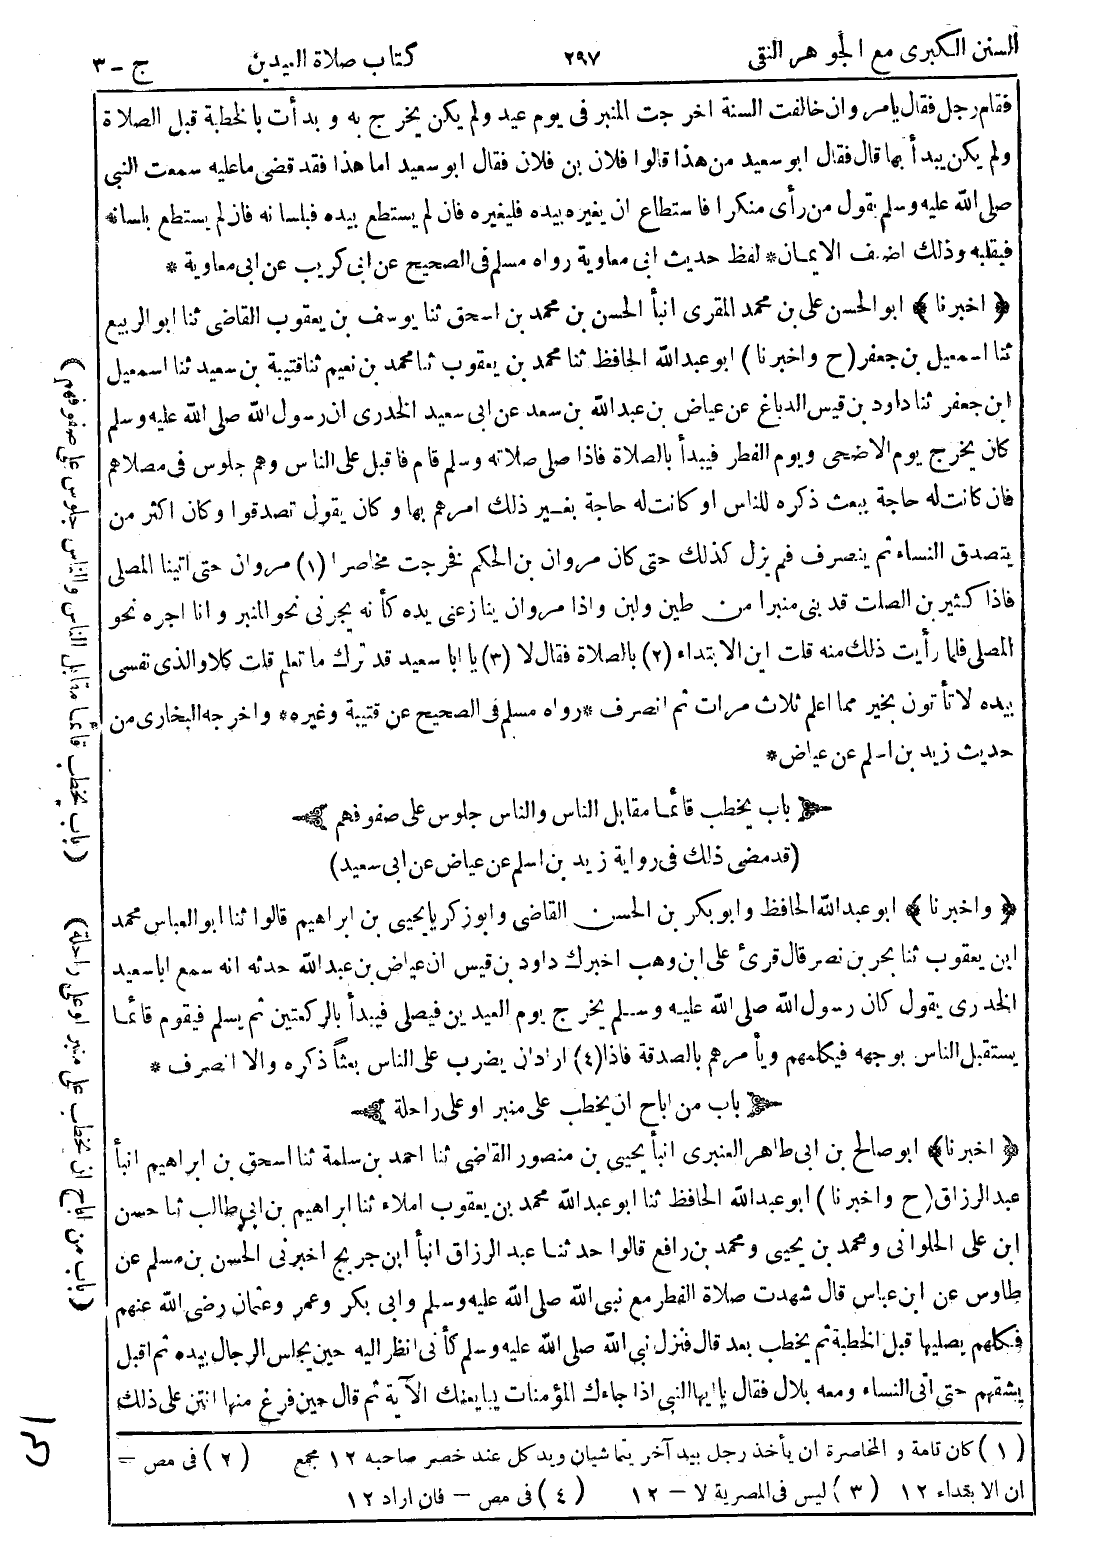 السنن الكبرى مع الجوهر النقى ٢٩٧ كتاب صلاة العيدين ج - ٣
فقام رجل فقال يامروان خالفت السنة اخرجت المنبر فى يوم عيد ولم يكن يخرج به وبدأت بالخطبة قبل الصلاة
ولم يكن يبدأ بها قال فقال ابو سعيد من هذا قالوا فلان بن فلان فقال ابو سعيد اما هذا فقد قضى ما عليه سمعت النبى
صلى الله عليه وسلم يقول من رأى منكرا فاستطاع ان يغيره بيده فليغيره فان لم يستطع بيده فبلسانه فان لم يستطع بلسانه
فبقلبه وذلك اضعف الايمان * لفظ حديث ابى معاوية رواه مسلم فى الصحيح عن ابى كريب عن ابى معاوية *
﴿ اخبرنا ﴾ ابو الحسن على بن محمد المقرى انبأ الحسن بن محمد بن اسحق ثنا يوسف بن يعقوب القاضى ثنا ابو الربيع
ثنا اسمعيل بن جعفر (ح واخبرنا) ابو عبد الله الحافظ ثنا محمد بن يعقوب ثنا محمد بن نعيم ثنا قتيبة بن سعيد ثنا اسمعيل
ابن جعفر ثنا داود بن قيس الدباغ عن عياض بن عبد الله بن سعد عن ابى سعيد الخدرى ان رسول الله صلى الله عليه وسلم
كان يخرج يوم الاضحى ويوم الفطر فيبدأ بالصلاة فاذا صلى صلاته وسلم قام فاقبل على الناس وهم جلوس فى مصلاهم
فان كانت له حاجة ببعث ذكره للناس او كانت له حاجة بغير ذلك امرهم بها وكان يقول تصدقوا وكان اكثر من
يتصدق النساء ثم ينصرف فلم يزل كذلك حتى كان مروان بن الحكم فخرجت مخاصرا (١) مروان حتى اتينا المصلى
فاذا كثير بن الصلت قد بنى منبرا من طين ولبن واذا مروان ينازعنى يده كأنه يجرنى نحو المنبر وانا اجره نحو
المصلى فلما رأيت ذلك منه قلت اين الابتداء (٢) بالصلاة فقال لا (٣) يا ابا سعيد قد ترك ما تعلم قلت كلا والذى نفسى
بيده لا تأتون بخير مما اعلم ثلاث مرات ثم انصرف * رواه مسلم فى الصحيح عن قتيبة وغيره * واخرجه البخارى من
حديث زيد بن اسلم عن عياض *
باب يخطب قائما مقابل الناس والناس جلوس على صفوفهم
(قد مضى ذلك فى رواية زيد بن اسلم عن عياض عن ابى سعيد)
﴿ واخبرنا ﴾ ابو عبد الله الحافظ وابو بكر بن الحسن القاضى وابو زكريا يحيى بن ابراهيم قالوا ثنا ابو العباس محمد
ابن يعقوب ثنا بحر بن نصر قال قرئ على ابن وهب اخبرك داود بن قيس ان عياض بن عبد الله حدثه انه سمع ابا سعيد
الخدرى يقول كان رسول الله صلى الله عليه وسلم يخرج يوم العيدين فيصلى فيبدأ بالركعتين ثم يسلم فيقوم قائما
يستقبل الناس بوجهه فيكلمهم ويأمرهم بالصدقة فاذا (٤) اراد ان يضرب على الناس بعثا ذكره والا انصرف *
باب من اباح ان يخطب على منبر او على راحلة
﴿ اخبرنا ﴾ ابو صالح بن ابى طاهر العنبرى انبأ يحيى بن منصور القاضى ثنا احمد بن سلمة ثنا اسحق بن ابراهيم انبأ
عبد الرزاق (ح واخبرنا) ابو عبد الله الحافظ ثنا ابو عبد الله محمد بن يعقوب املاء ثنا ابراهيم بن ابى طالب ثنا حسن
ابن على الحلوانى ومحمد بن يحيى ومحمد بن رافع قالوا حدثنا عبد الرزاق انبأ ابن جريج اخبرنى الحسن بن مسلم عن
طاوس عن ابن عباس قال شهدت صلاة الفطر مع نبى الله صلى الله عليه وسلم وابى بكر وعمر وعثمان رضى الله عنهم
فكلهم يصليها قبل الخطبة ثم يخطب بعد قال فنزل نبى الله صلى الله عليه وسلم كأنى انظر اليه حين يجلس الرجال بيده ثم اقبل
يشقهم حتى اتى النساء ومعه بلال فقال يا ايها النبى اذا جاءك المؤمنات يبايعنك الآية ثم قال حين فرغ منها انتن على ذلك
(١) كان قامة و المخاصرة ان يأخذ رجل بيد آخر يتماشيان ويد كل عند خصر صاحبه ١٢ مجمع (٢) فى مص –
ان الابتداء ١٢ (٣) ليس فى المصرية لا – ١٢ (٤) فى مص – فان اراد ١٢
(باب يخطب قائما مقابل الناس والناس جلوس على صفوفهم)
(باب من اباح ان يخطب على منبر او على راحلة)